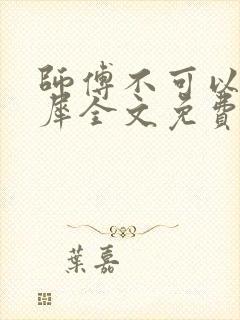 師傅不可以
犀全文免費
葉嘉